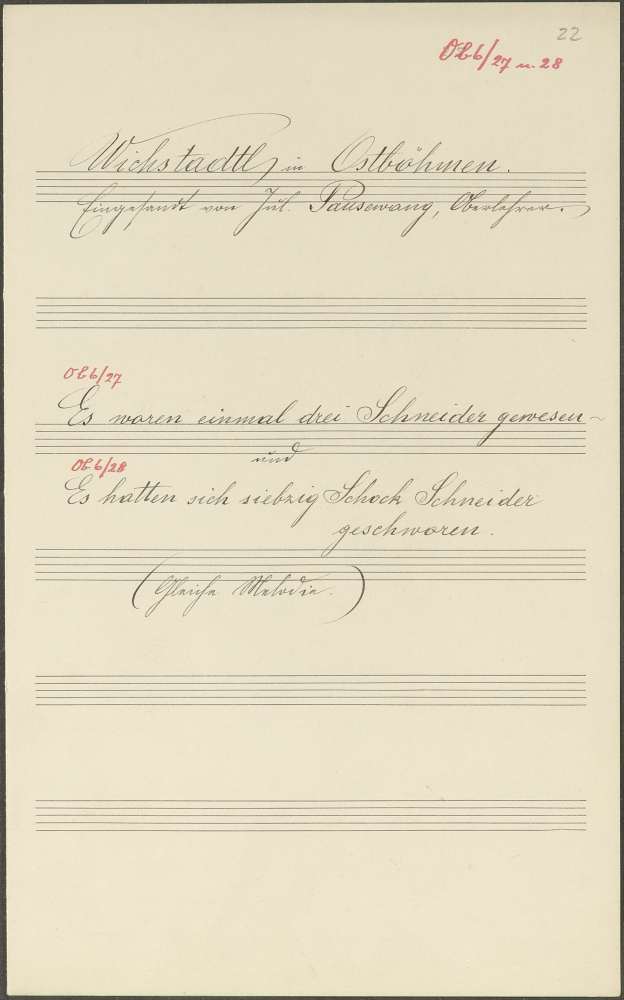 22
Ob6/27 u. 28
Wichstadtl, in Ostböhmen.
Eingesandt von Jul. Pausewang, Oberlehrer.
Ob6/27
Es waren einmal drei Schneider gewesen
und
Ob6/28
Es hatten sich siebzig Schock Schneider
geschworen.
(Gleiche Melodie.)